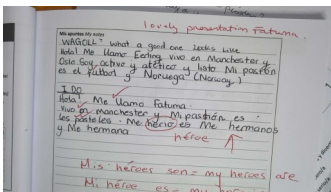 lovely presentation Fatuma.
Mis apuntes My notes
WAGOLL: what a good one looks like
Hola! Me llamo Eerling vivo en Manchester y
Ocio Soy activo y atlético y listo Mi pasión
es el futbot y Noruega (Norway)
I DO
Hola! Me llamo Fatuma.
Vivo en manchester y Mi pastión es
los pasteles. Me herio es Me hermanos
y Me hermana
héroe
Mis héroes son = my heroes are
Mi héroe es = my